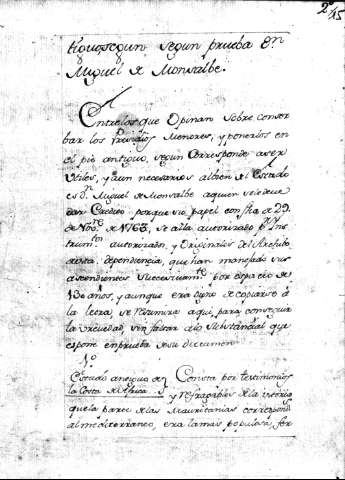 2º
45
segun prueba Dn
Miguel de Monsalbe.
Entre los que Opinan sobre conser
bar los Presidios Menores, y ponerlos en
el pie antiguo, segun Corresponde a ser
Utiles, y aun necesarios al bien del Estado
es Dn Miguel de Monsalbe a quien se le deve
dar Credito porque su papel con fha de 29
de Novre de 1763, se alla autorizado pr Ins
trumtos autorizados, y Originales del Archibo
de esta dependencia, que han manejado sus
ascendientes Succesivamte por espacio de
130 años, y aunque era digno de copiarse á
la letra, se resumira aqui, para conseguir
la brevedad, sin faltar á lo Substancial que
espone en prueba de su dictamen.
1º
Estado antiguo de
la Costa de Africa
Consta por testimonios
y refragables de la istoria
que la parte de las Mauritanias correspond
al mediterraneo, era la mas populosa, fer